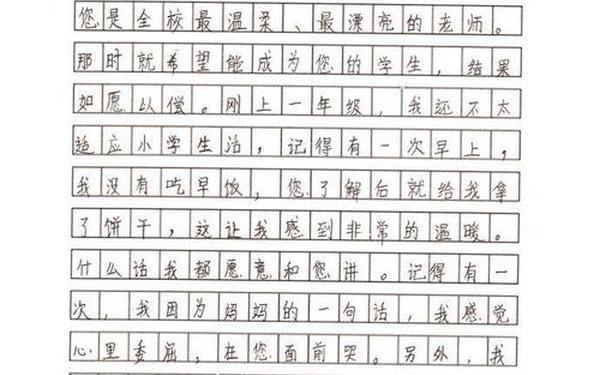 您是全校最温柔、最漂亮的老师。
那时就希望能成为您的学生，结果
如愿以偿。刚上一年级，我还不太
适应小学生活，记得有一次早上，
我没有吃早饭，您了解后就给我拿
了饼干，这让我感到非常的温暖。
什么话我都愿意和您讲。记得有一
次，我因为妈妈的一句话，我感觉
心里委屈，在您面前哭。另外，我